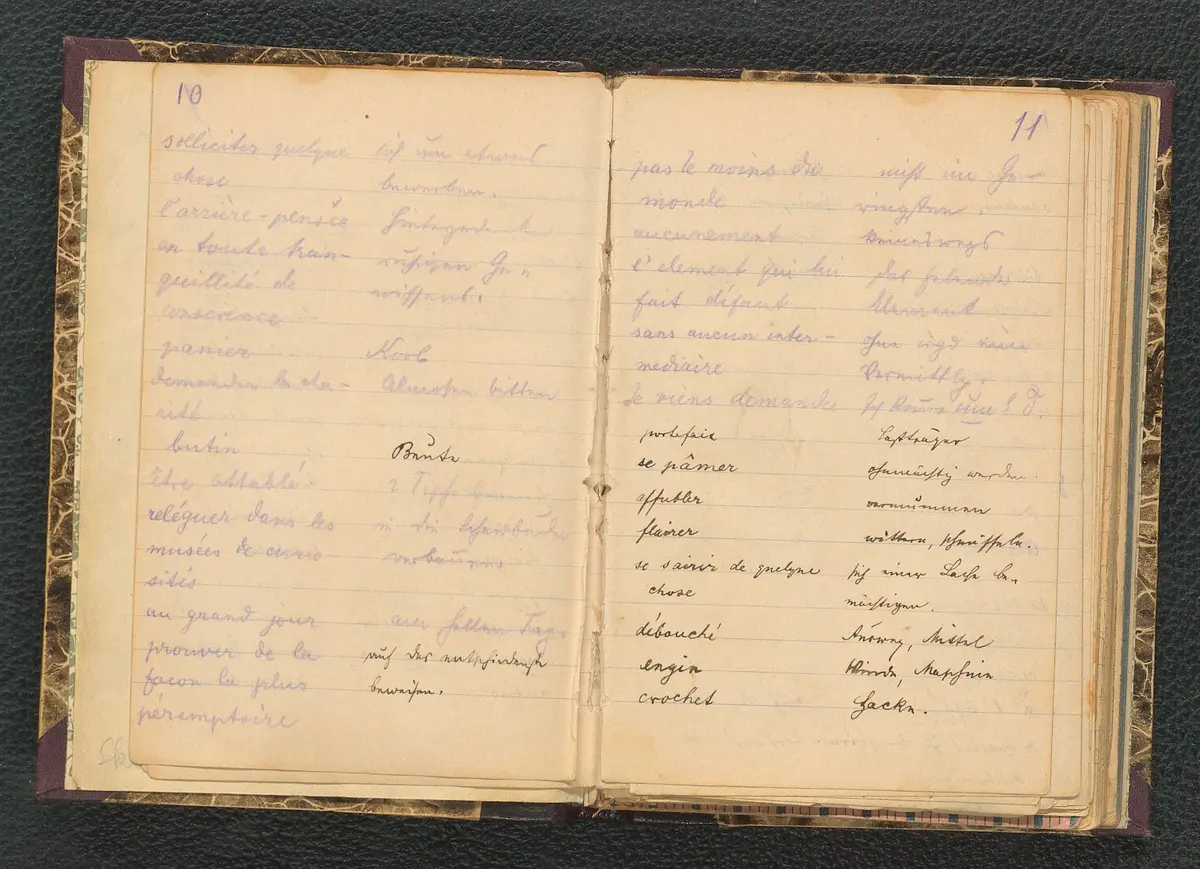 10
solliciter quelque sich um etwas
chose bewerben.
l'arrière-pensée Hintergedanke
en toute tran- ruhigen Ge-
quillité de wissens.
conscience
panier Korb
demander la cha- Almosen bitten
rité
butin Beute
être attablé z Tisch
reléguer dans les in die
musées de curio
sités
au grand jour am hellen Tag.
prouver de la auf das entschiedenste
façon la plus beweisen.
péremptoire
11
pas le moins du nicht im Ge-
monde ringsten.
aucunement keineswegs
l'element qui lui das fehlende
fait défaut Element
sans aucun inter- ohne irgd eine
mediaire Vermittlg.
Je viens demander Ich komme um
portefaix Lastträger
se pâmer ohnmächtig werden.
affubler vermummen
flairer wittern, schnüffeln.
se saisir de quelque sich einer Sache be-
chose mächtigen.
débouché Ausweg, Mittel
engin Winde, Maschine
crochet Hacken.